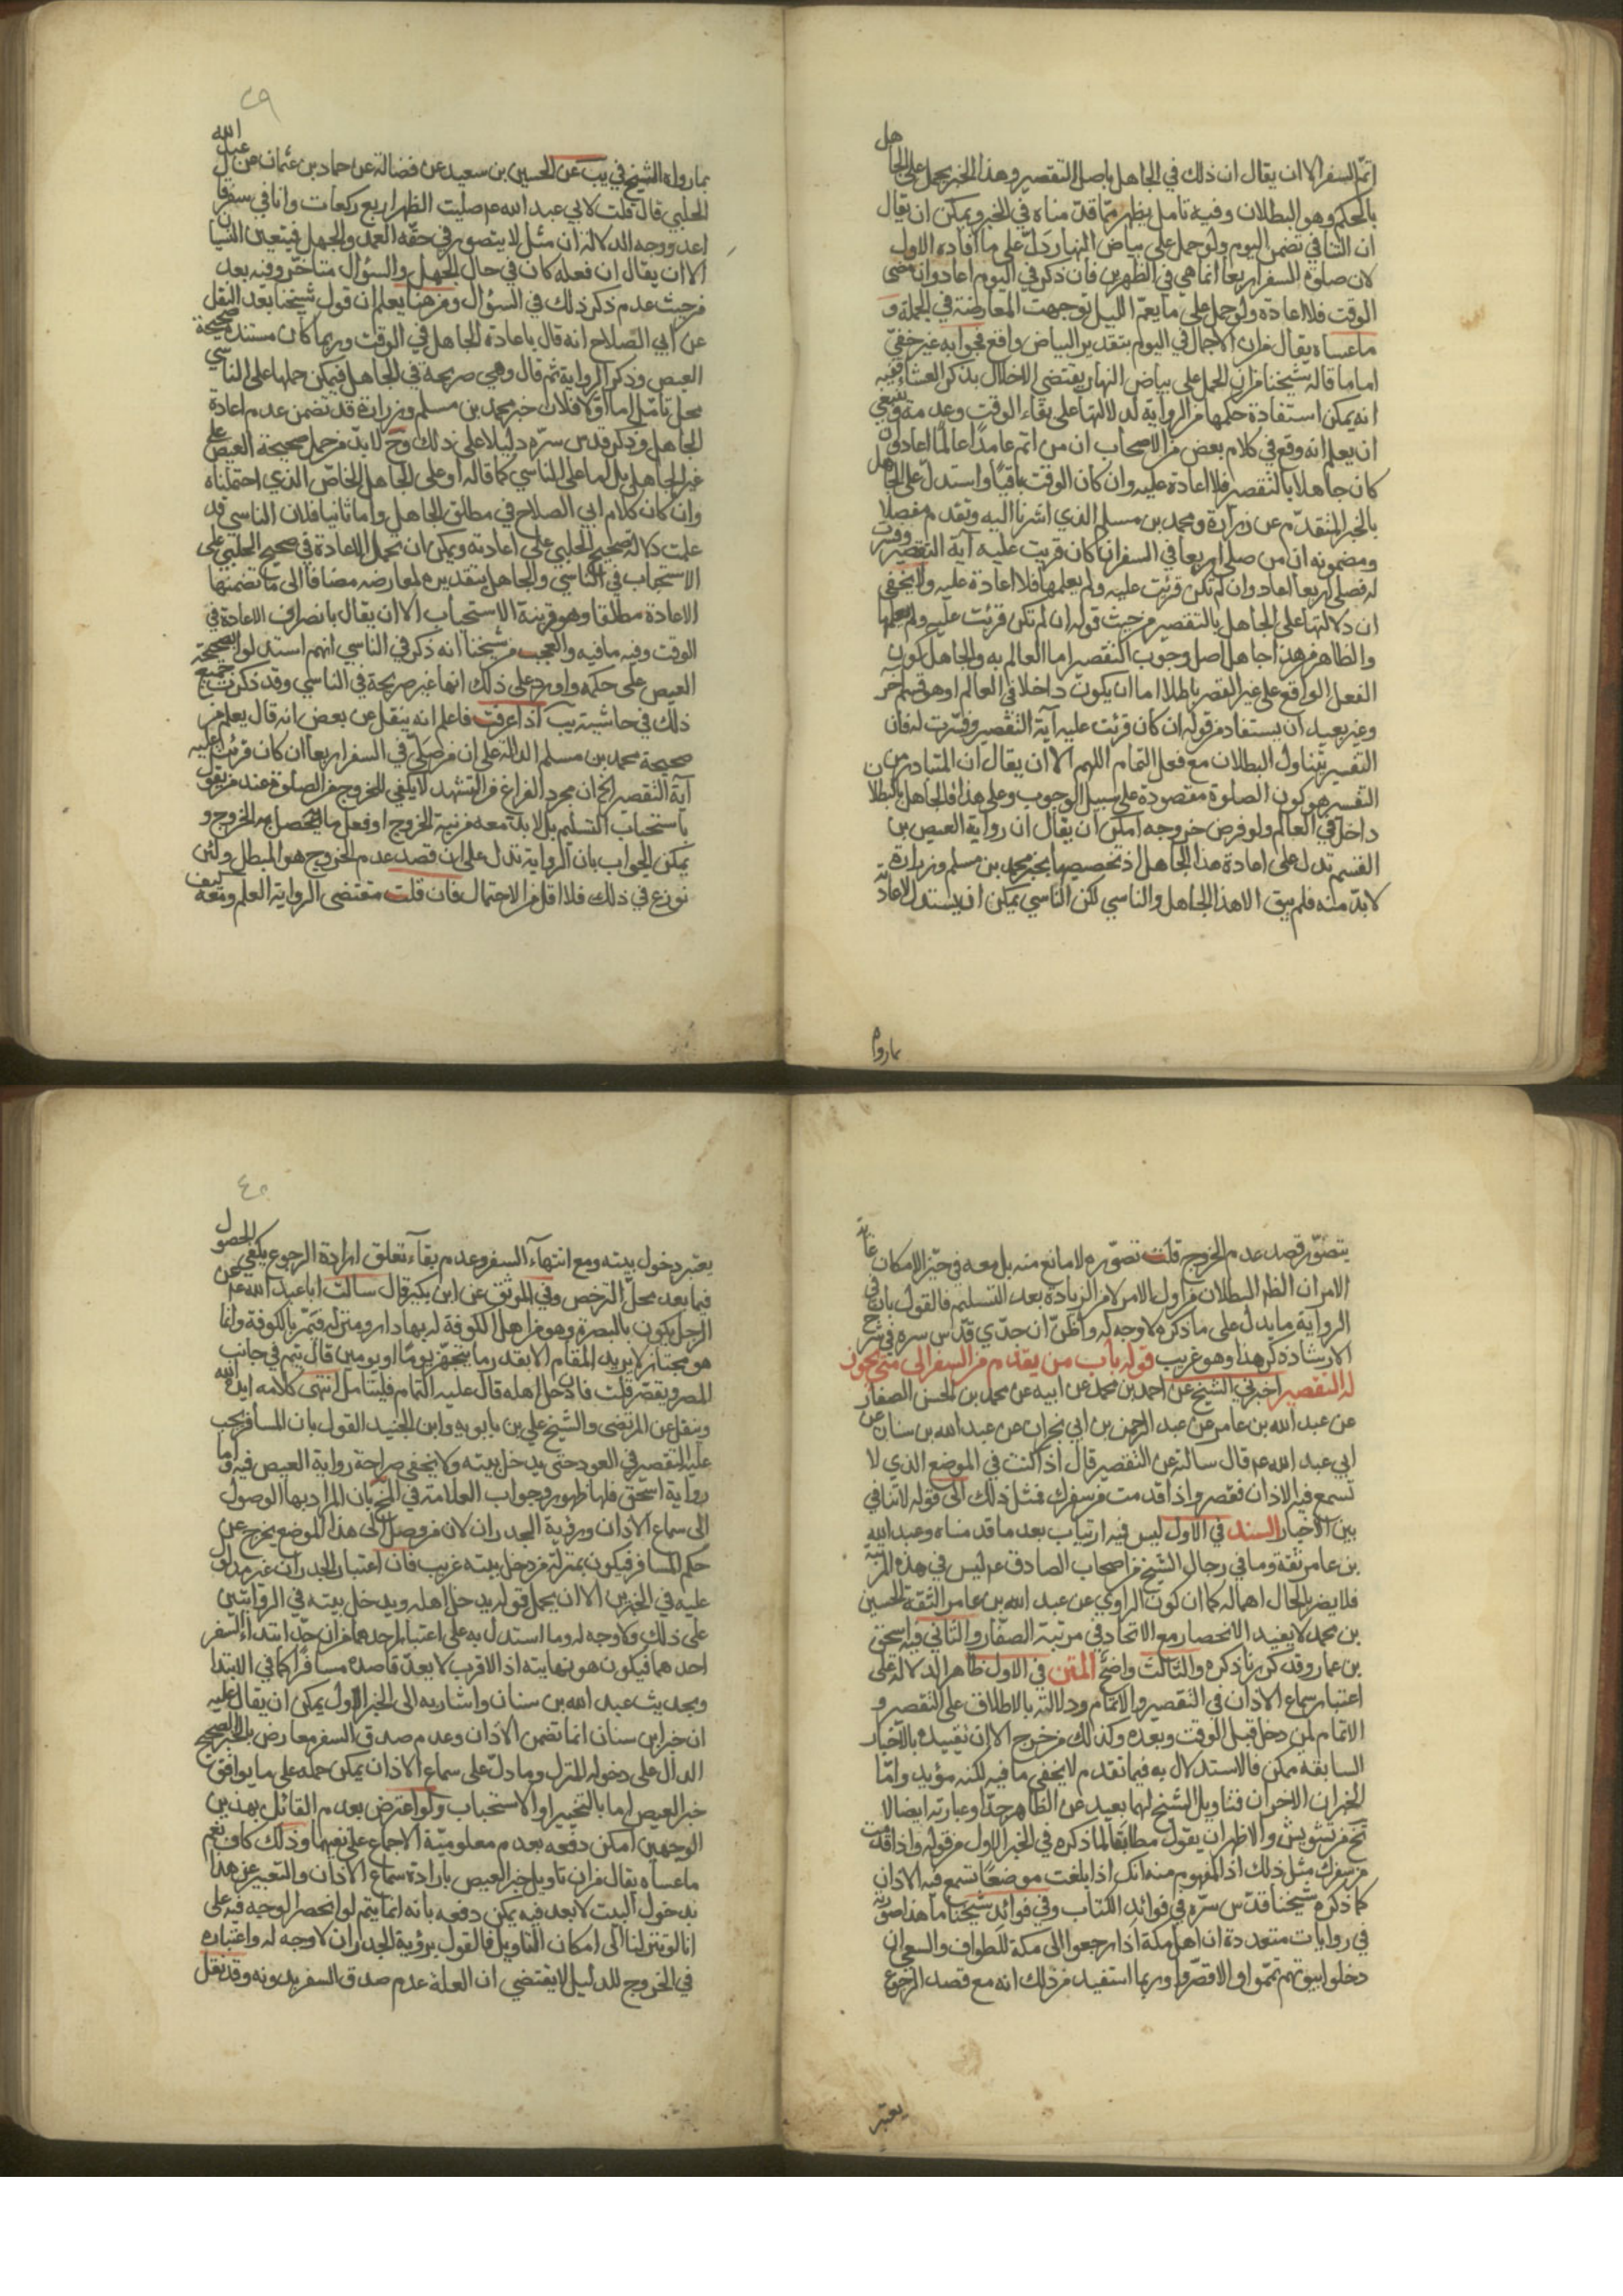 اتمّ السفر الا ان يقال ان ذلك في الجاهل باصل التقصير وهذا الخبر يحمل على الجاهل
بالحكم وهو البطلان وفيه تامل يظهر ممّا قدّمناه في الخبر ويمكن ان يقال
ان الثاني تضمن اليوم ولو حمل على بياض النهار دَلّ على ما افاده الاول
لان صلوة السفر اربعا انما هي في الظهرين فان ذكر في اليوم اعاد وان مضى
الوقت فلا اعادة ولو حمل على ما يعمّ الليل توجهت المعارضة في الجملة و
ما عساه يقال من ان الاجمال في اليوم بتقدير البياض واقع فجوابه غير خفيّ
اما ما قاله شيخنا من ان الحمل على بياض النهار يقتضي الاخلال بذكر العشاء ففيه
انه يمكن استفادة حكمها من الرواية لدلالتها على بقاء الوقت وعدمه وينبغي
ان يعلم انه وقع في كلام بعض من الاصحاب ان من اتم عامدًا عالمًا اعاد وان
كان جاهلا بالتقصير فلا اعادة عليه وان كان الوقت باقيًا واستدلّ على الجاهل
بالخبر المتقدّم عن زرارة ومحمد بن مسلم الذي اشرنا اليه وتقدم مفصلا
ومضمونه ان من صلى اربعا في السفر ان كان قريت عليه آية التقصير وفسرت
له فصلى اربعا اعاد وان لم تكن قرئت عليه ولم يعلمها فلا اعادة عليه ولا يخفى
ان دلالتها على الجاهل بالتقصير من حيث قوله ان لم تكن قرئت عليه ولم يعلمها
والظاهر من هذا جاهل اصل وجوب التقصير اما العالم به والجاهل بكون
الفعل الواقع على غير القصر باطلا اما ان يكون داخلا في العالم او هو قسم آخر
وغير بعيد ان يستفاد من قوله ان كان قرئت عليه آية التقصير وفسّرت له فان
التفسير يتناول البطلان مع فعل التمام اللهم الا ان يقال ان المتبادر من
التفسير هو كون الصلوة مقصودة على سبيل الوجوب وعلى هذا فالجاهل بالبطلان
داخل في العالم ولو فرض خروجه امكن ان يقال ان رواية العيص بن
القسم تدل على اعادة هذا الجاهل اذ تخصيصها بخبر محمد بن مسلم وزرارة
لا بدّ منه فلم يبق الا هذا الجاهل والناسي لكن الناسي يمكن ان يستدل لاعادته
بما رواه
٣٩
بما رواه الشيخ في يب عن الحسين بن سعيد عن فضالة عن حماد بن عثمان عن عبيد الله
الحلبي قال قلت لابي عبد الله ع صليت الظهر اربع ركعات وانا في سفر قال
اعد ووجه الدلالة ان مثله لا يتصور في حقّه العمد والجهل فيتعين النسيان
الا ان يقال ان فعله كان في حال الجهل والسؤال متاخّر وفيه بعد
من حيث عدم ذكر ذلك في السؤال ومن هنا يعلم ان قول شيخنا بعد النقل
عن ابي الصلاح انه قال باعادة الجاهل في الوقت وربما كان مستنده صحيحة
العيص وذكر الرواية ثم قال وهي صريحة في الجاهل فيمكن حملها على الناسي
محل تامّل اما اوّلا فلان خبر محمد بن مسلم وزرارة قد تضمن عدم اعادة
الجاهل وذكر قدس سرّه دليلا على ذلك وح لا بدّ من حمل صحيحة العيص على
غير الجاهل بل اما على الناسي كما قاله او على الجاهل الخاصّ الذي احتملناه
وان كان كلام ابي الصلاح في مطلق الجاهل واما ثانيا فلان الناسي قد
علمت دلالة صحيح الحلبي على اعادته ويمكن ان يحمل الاعادة في صحيح الحلبي على
الاستحباب في الناسي والجاهل بتقديره لمعارضه مضافا الى ما تضمنها
الاعادة مطلقا وهو قرينة الاستحباب الا ان يقال بانصراف الاعادة في
الوقت وفيه ما فيه والعجب من شيخنا انه ذكر في الناسي انهم استدلوا بصحيحة
العيص على حكمه واورد على ذلك انها غير صريحة في الناسي وقد ذكرت جميع
ذلك في حاشية يب اذا عرفت فاعلم انه ينقل عن بعض انه قال يعلم من
صحيحة محمد بن مسلم الدالة على ان من صَلّى في السفر اربعا ان كان قرئت عليه
آية التقصير الخ ان مجرد الفراغ من التشهد لا يكفي للخروج من الصلوة عند من يقول
باستحباب التسليم بل لا بدّ معه من نية الخروج او فعل ما يحصل به الخروج و
يمكن الجواب بان الرواية تدل على ان قصد عدم الخروج هو المبطل ولئن
نوزع في ذلك فلا اقل من الاحتمال فان قلت مقتضى الرواية العلم ومعه كيف
يتصوّر قصد عدم الخروج قلت تصوّره لا مانع منه بل معه في حيّز الامكان غاية
الامر ان الظ البطلان من اول الامر لا من الزيادة بعد التسليم فالقول بان في
الرواية ما يدل على ما ذكره لا وجه له واظنّ ان جدّي قدّس سره في شرح
الارشاد ذكر هذا وهو غريب قوله باب من يقدم من السفر الى متى يجوز
له التقصير اخبرني الشيخ عن احمد بن محمد عن ابيه عن محمد بن الحسن الصفار
عن عبد الله بن عامر عن عبد الرحمن بن ابي نجران عن عبد الله بن سنان عن
ابي عبد الله ع قال سالته عن التقصير قال اذا كنت في الموضع الذي لا
تسمع فيه الاذان فقصر واذا قدمت من سفرك فمثل ذلك الى قوله لا تنافي
بين الاخبار السند في الاول ليس فيه ارتياب بعد ما قدمناه وعبد الله
بن عامر ثقة وما في رجال الشيخ من اصحاب الصادق ع ليس في هذه المرتبة
فلا يضر بالحال اهماله كما ان كون الراوي عن عبد الله بن عامر الثقة الحسين
بن محمد لا يفيد الانحصار مع الاتحاد في مرتبة الصفّار والثاني فيه اسحق
بن عمار وقد كررنا ذكره والثالث واضح المتن في الاول ظاهر الدلالة على
اعتبار سماع الاذان في التقصير والاتمام ودلالته بالاطلاق على التقصير و
الاتمام لمن دخل قبل الوقت وبعده وكذلك من خرج الا ان تقييده بالاخبار
السابقة ممكن فالاستدلال به فيما تقدم لا يخفى ما فيه لكنه مؤيد وامّا
الخبران الاخران فتاويل الشيخ لهما بعيد عن الظاهر جدّا وعبارته ايضا لا
تخ من تشويش والاظهر ان يقول مطابقا لما ذكره في الخبر الاول من قوله واذا قدمت
من سفرك مثل ذلك اذ المفهوم منه انك اذا بلغت موضعًا تسمع فيه الاذان
كما ذكره شيخنا قدّس سرّه في فوائد الكتاب وفي فوائد شيخنا ما هذا صورته
في روايات متعددة ان اهل مكة اذا رجعوا الى مكة للطواف والسعي ان
دخلوا بيوتهم تمموا والا قصّروا وربما استفيد من ذلك انه مع قصد الرجوع
يعتبر
٤٠
يعتبر دخول بيته ومع انتهاء السفر وعدم بقاء تعلق ارادة الرجوع يكفي الحصول
فيما بعد محلّ الترخص وفي الموثق عن ابن بكير قال سالت ابا عبد الله ع عن
الرجل يكون بالبصرة وهو من اهل الكوفة له بها دار ومنزل فيمرّ بالكوفة وانما
هو مجتاز لا يريد المقام الا بقدر ما يتجهّز يومًا او يومين قال يتم في جانب
المصر ويقصّر قلت فان دخل اهله قال عليه التمام فليتامل انتهى كلامه ايده الله
وينقل عن المرتضى والشيخ علي بن بابويه وابن الجنيد القول بان المسافر يجب
عليه التقصير في العود حتى يدخل بيته ولا يخفى صراحة رواية العيص فيه واما
رواية اسحق فلها ظهور وجواب العلامة في المخ بان المراد بها الوصول
الى سماع الاذان ورؤية الجدران لان من وصل الى هذا الموضع يخرج عن
حكم المسافر فيكون بمنزلة من دخل بيته غريب فان اعتبار الجدران غير مدلول
عليه في الخبرين الا ان يحمل قوله يدخل اهله ويدخل بيته في الروايتين
على ذلك ولا وجه له وما استدل به على اعتبار احدهما من ان حدّ ابتداء السفر
احدهما فيكون هو نهايته اذ الاقرب لا يعدّ قاصده مسافرا كما في الابتدا
وبحديث عبد الله بن سنان واشار به الى الخبر الاول يمكن ان يقال عليه
ان خبر ابن سنان انما تضمن الاذان وعدم صدق السفر معارض بالخبر الصحيح
الدال على دخوله المنزل وما دلّ على سماع الاذان يمكن حمله على ما يوافق
خبر العيص اما بالتخيير او الاستحباب ولو اعترض بعدم القائل بهذين
الوجهين امكن دفعه بعدم معلوميّة الاجماع على نفيهما وذلك كاف نعم
ما عساه يقال من ان تاويل خبر العيص بارادة سماع الاذان والتعبير عن هذا
بدخول البيت لا بعد فيه يمكن دفعه بانه انما يتم لو انحصر الوجه فيه على
انا لو تنزلنا الى امكان التاويل فالقول برؤية الجدران لا وجه له واعتباره
في الخروج للدليل لا يقتضي ان العلة عدم صدق السفر بدونه وقد يقل